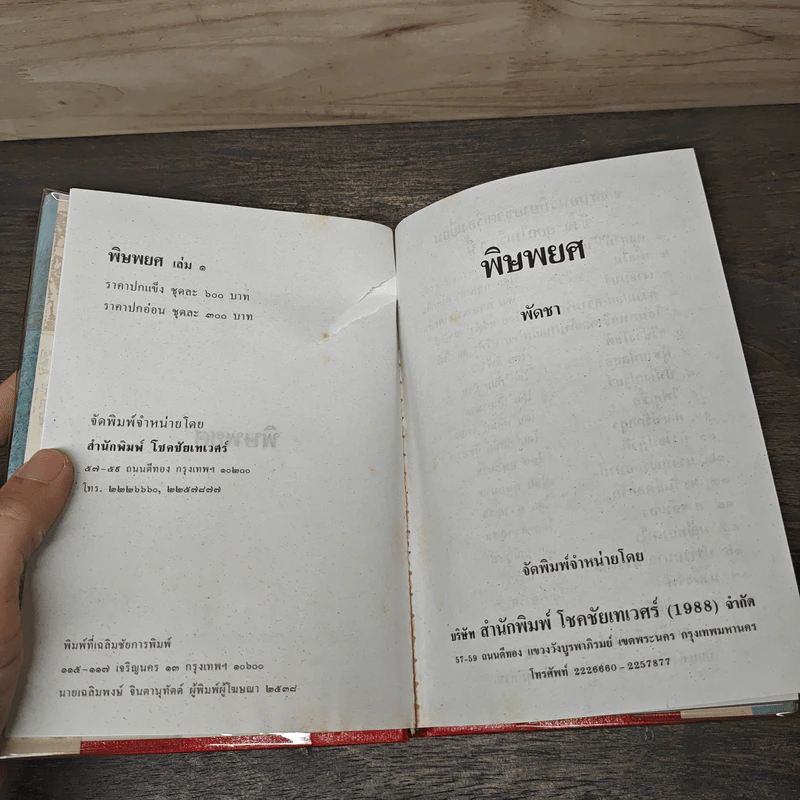 พิษพยศ เล่ม ๑
ราคาปกแข็ง ชุดละ ๖๐๐ บาท
ราคาปกอ่อน ชุดละ ๓๐๐ บาท
จัดพิมพ์จำหน่ายโดย
สำนักพิมพ์ โชคชัยเทเวศร์
๕๗-๕๙ ถนนตีทอง กรุงเทพฯ ๑๐๒๐๐
โทร. ๒๒๒๖๖๖๐, ๒๒๕๗๘๗๗
พิมพ์ที่เฉลิมชัยการพิมพ์
๑๑๕-๑๑๗ เจริญนคร ๑๓ กรุงเทพฯ ๑๐๖๐๐
นายเฉลิมพงษ์ จินตานุทัตต์ ผู้พิมพ์ผู้โฆษณา ๒๕๓๘
พิษพยศ
พัดชา
จัดพิมพ์จำหน่ายโดย
บริษัท สำนักพิมพ์ โชคชัยเทเวศร์ (1988) จำกัด
57-59 ถนนตีทอง แขวงวังบูรพาภิรมย์ เขตพระนคร กรุงเทพมหานคร
โทรศัพท์ 2226660-2257877